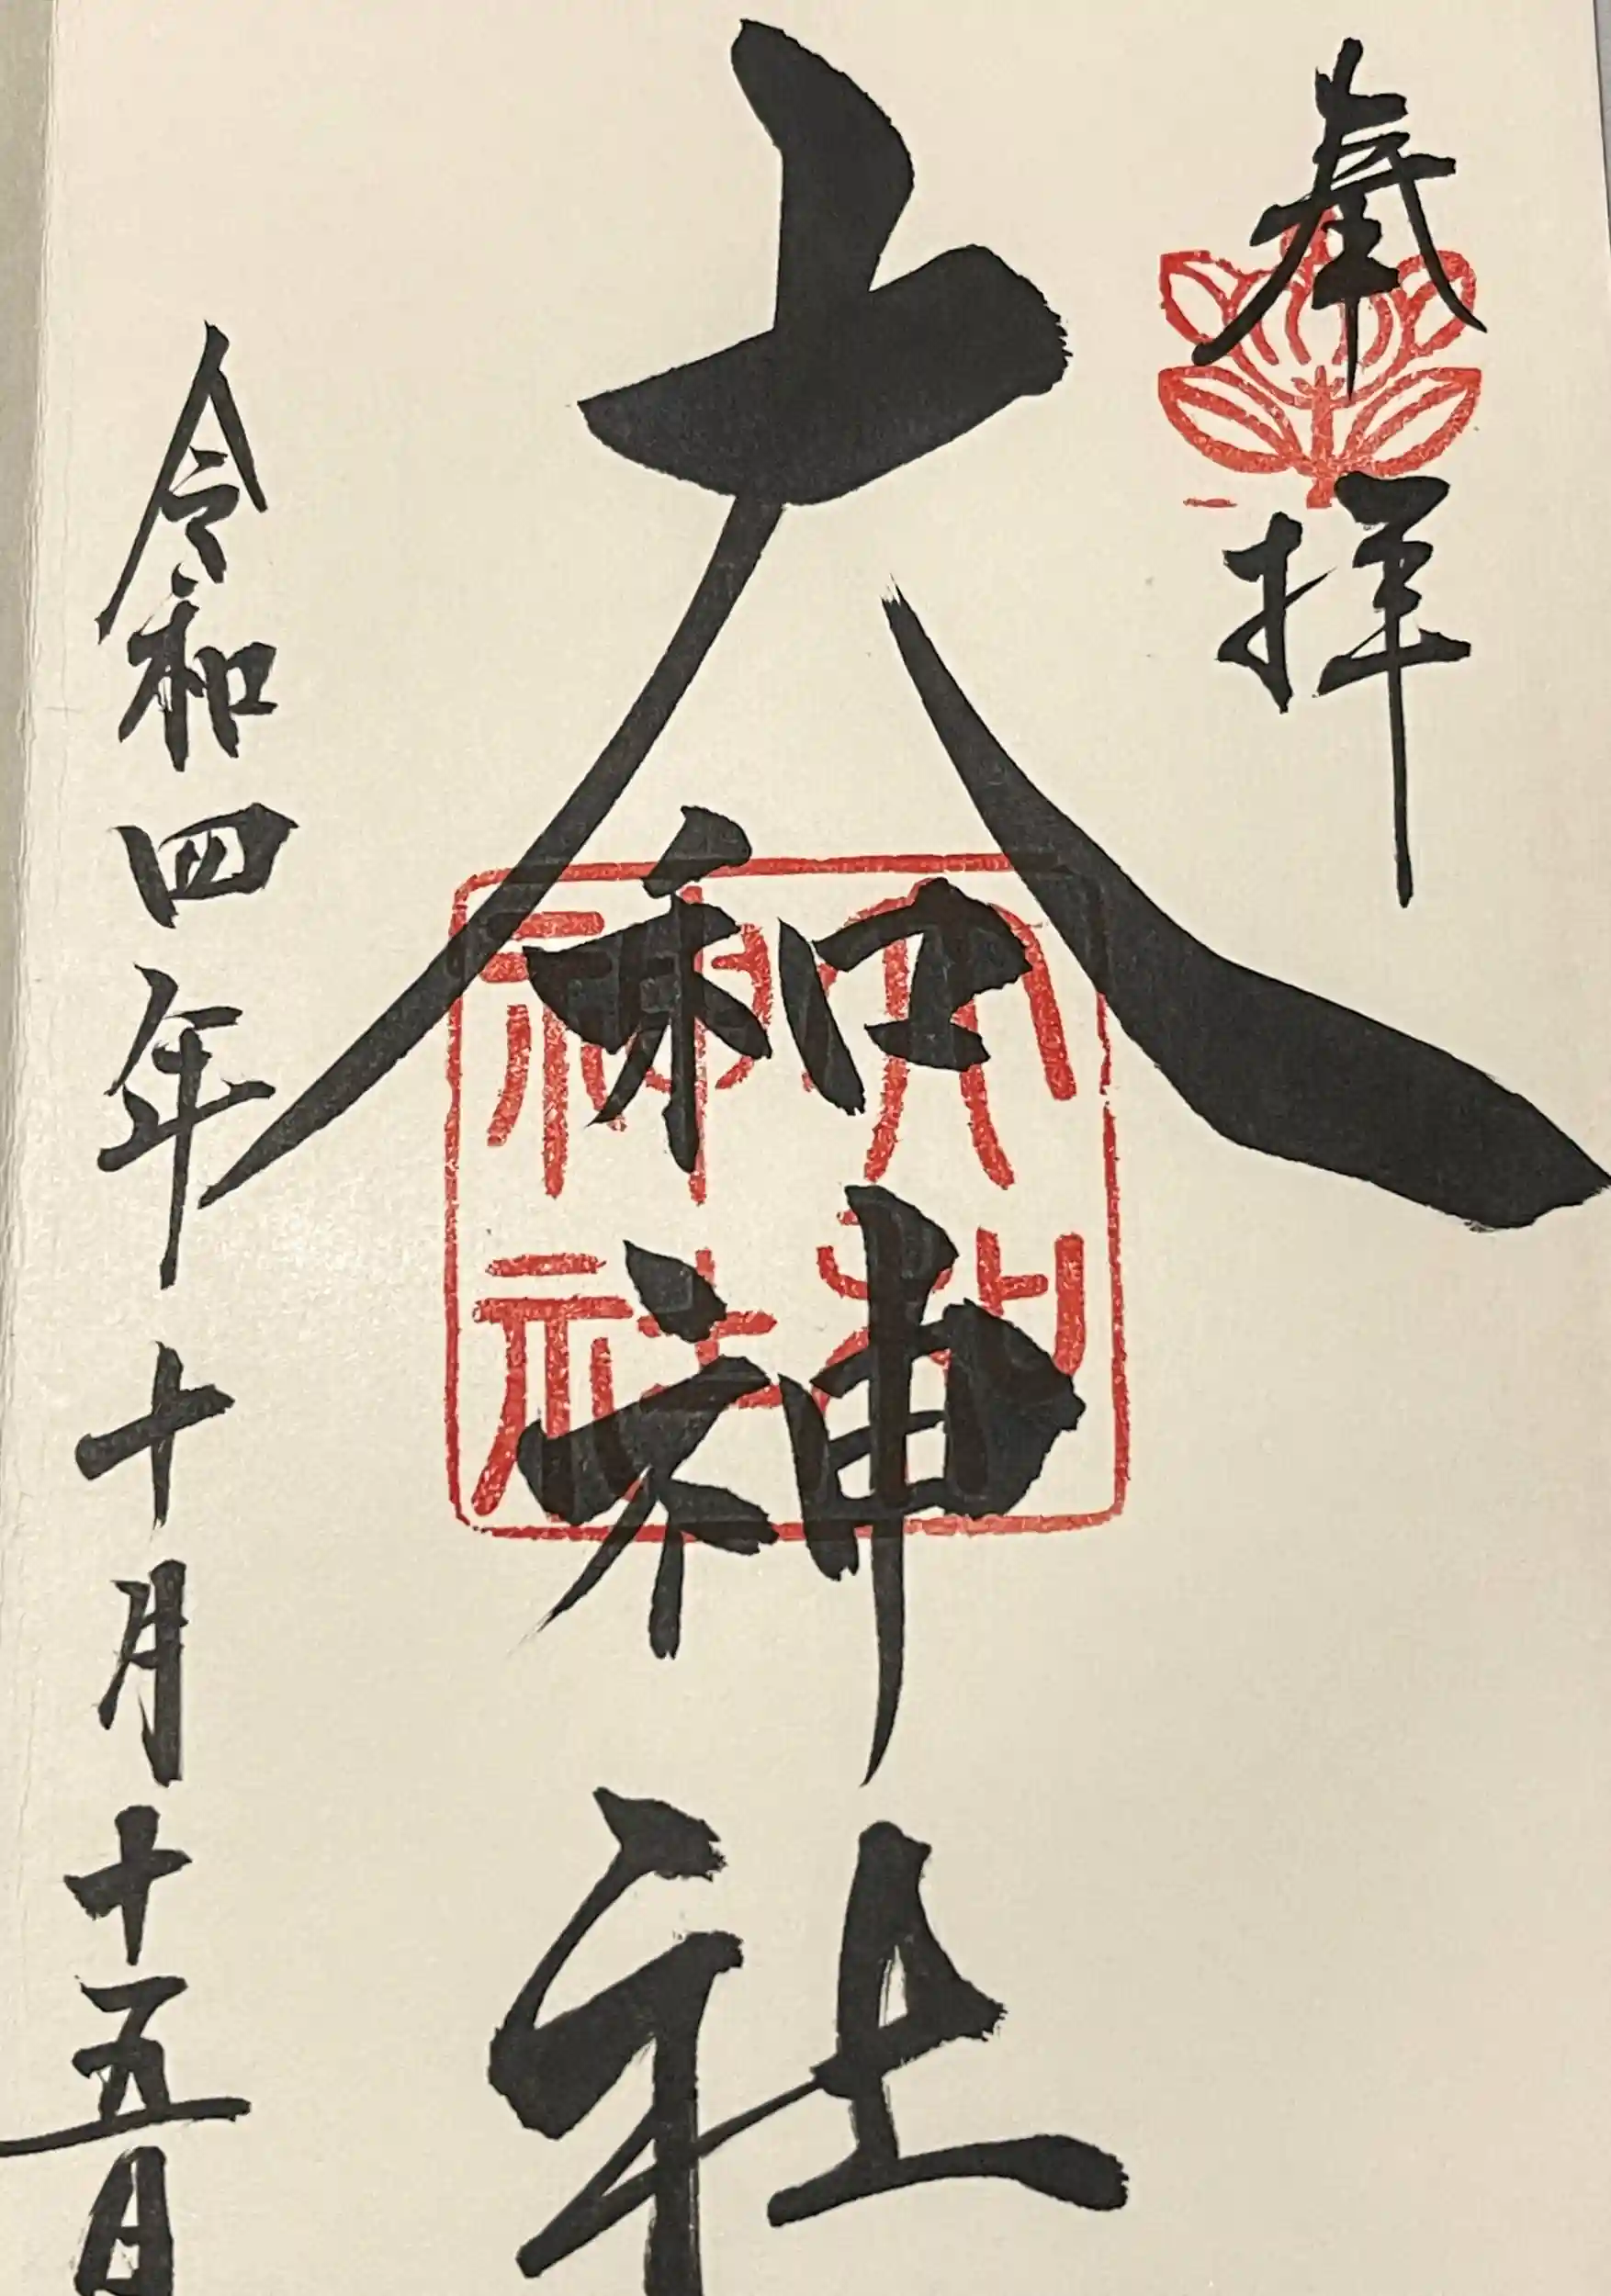 奉拝
大和神社
大和神社
令和四年十月十五日